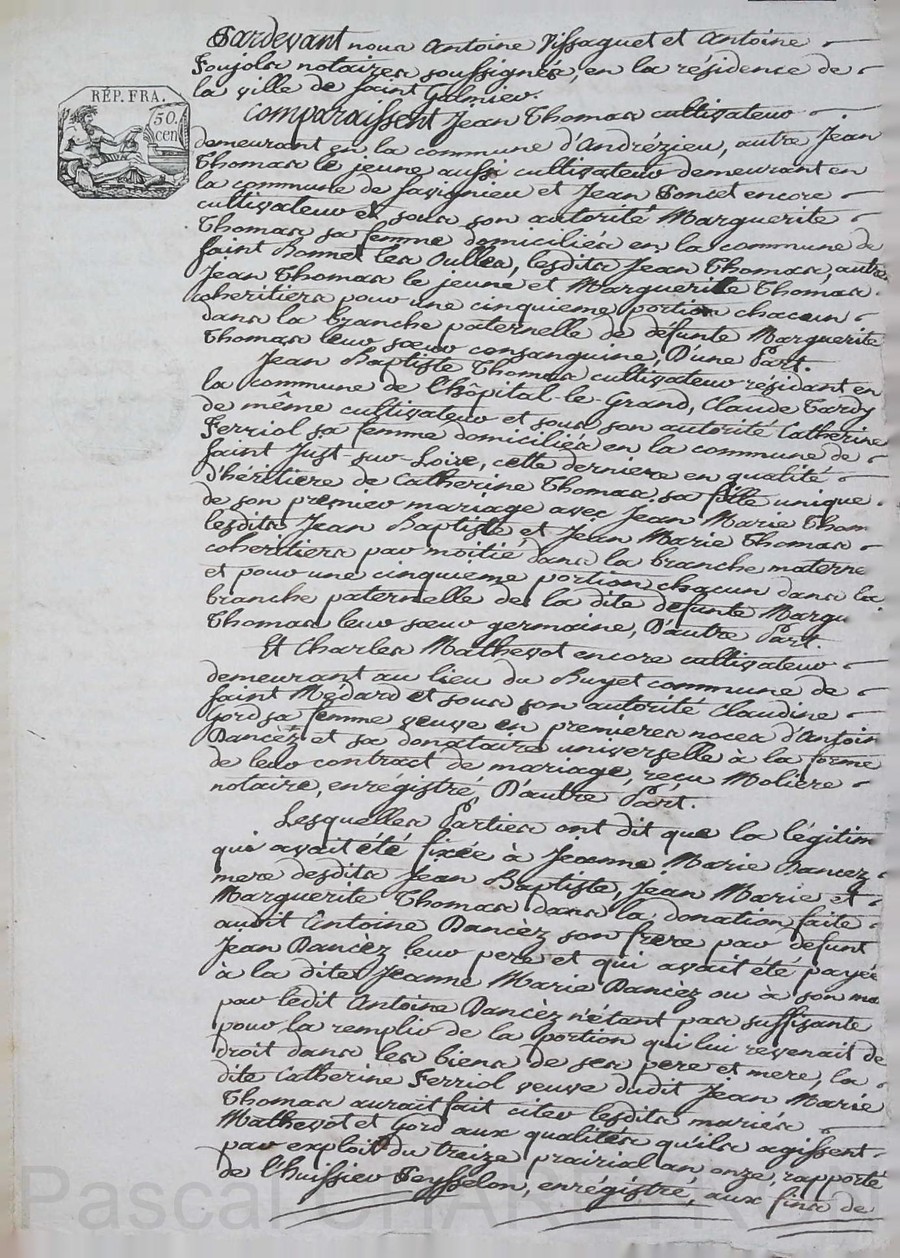 RÉP. FRA.
50.
cen
Pardevant nous Antoine Vissaguet et Antoine
Poujols notaires soussignés, en la résidence de
la ville de saint Galmier.
Comparaissent Jean Thomas cultivateur
demeurant en la commune d'Andrézieu, autre Jean
Thomas le jeune aussi cultivateur demeurant en
la commune de savignieu et Jean Poncet encore
cultivateur et sous son autorité Marguerite
Thomas sa femme domiciliés en la commune de
saint Bonnet les Oulles, lesdits Jean Thomas, autre
Jean Thomas le jeune et Marguerite Thomas
coheritiers pour une cinquieme portion chacun
dans la branche paternelle de défunte Marguerite
Thomas leur sœur consanguine, D'une Part.
Jean Baptiste Thomas cultivateur résidant en
la commune de l'hôpital-le-Grand, Claude Tardy
de même cultivateur et sous son autorité Catherine
Ferriol sa femme domiciliés en la commune de
saint Just-sur-Loire, cette derniere en qualité
d'héritiere de Catherine Thomas, sa fille unique
de son premier mariage avec Jean Marie Thom
lesdits Jean Baptiste et Jean Marie Thomas
coheritiers par moitié dans la branche materne
et pour une cinquieme portion chacun dans la
branche paternelle de la dite défunte Margu
Thomas leur sœur germaine, D'autre Part.
Et Charles Mathevot encore cultivateur
demeurant au lieu du Buyet commune de
saint Médard et sous son autorité Claudine
Gord sa femme veuve en premieres noces d'Antoin
Dancèz et sa donataire universelle à la forme
de leur contract de mariage, reçu Moliere
notaire, enrégistré, D'autre Part.
Lesquelles Parties ont dit que la légitim
qui avait été fixée à Jeanne Marie Dancez
mere desdits Jean Baptiste, Jean Marie et
Marguerite Thomas dans la donation faite
audit Antoine Dancèz son frere par défunt
Jean Dancèz leur pere et qui avait été payée
à la dite Jeanne Marie Dancèz ou à son ma
par ledit Antoine Dancèz n'étant pas suffisante
pour la remplir de la portion qui lui revenait de
droit dans les biens de ses pere et mere, la
dite Catherine Ferriol veuve dudit Jean Marie
Thomas aurait fait citer lesdits mariés
Mathevot et Gord aux qualités qu'ils agissent
par exploit du treize prairial an onze, rapporté
de l'huissier Peysselon, enrégistré, aux fins de